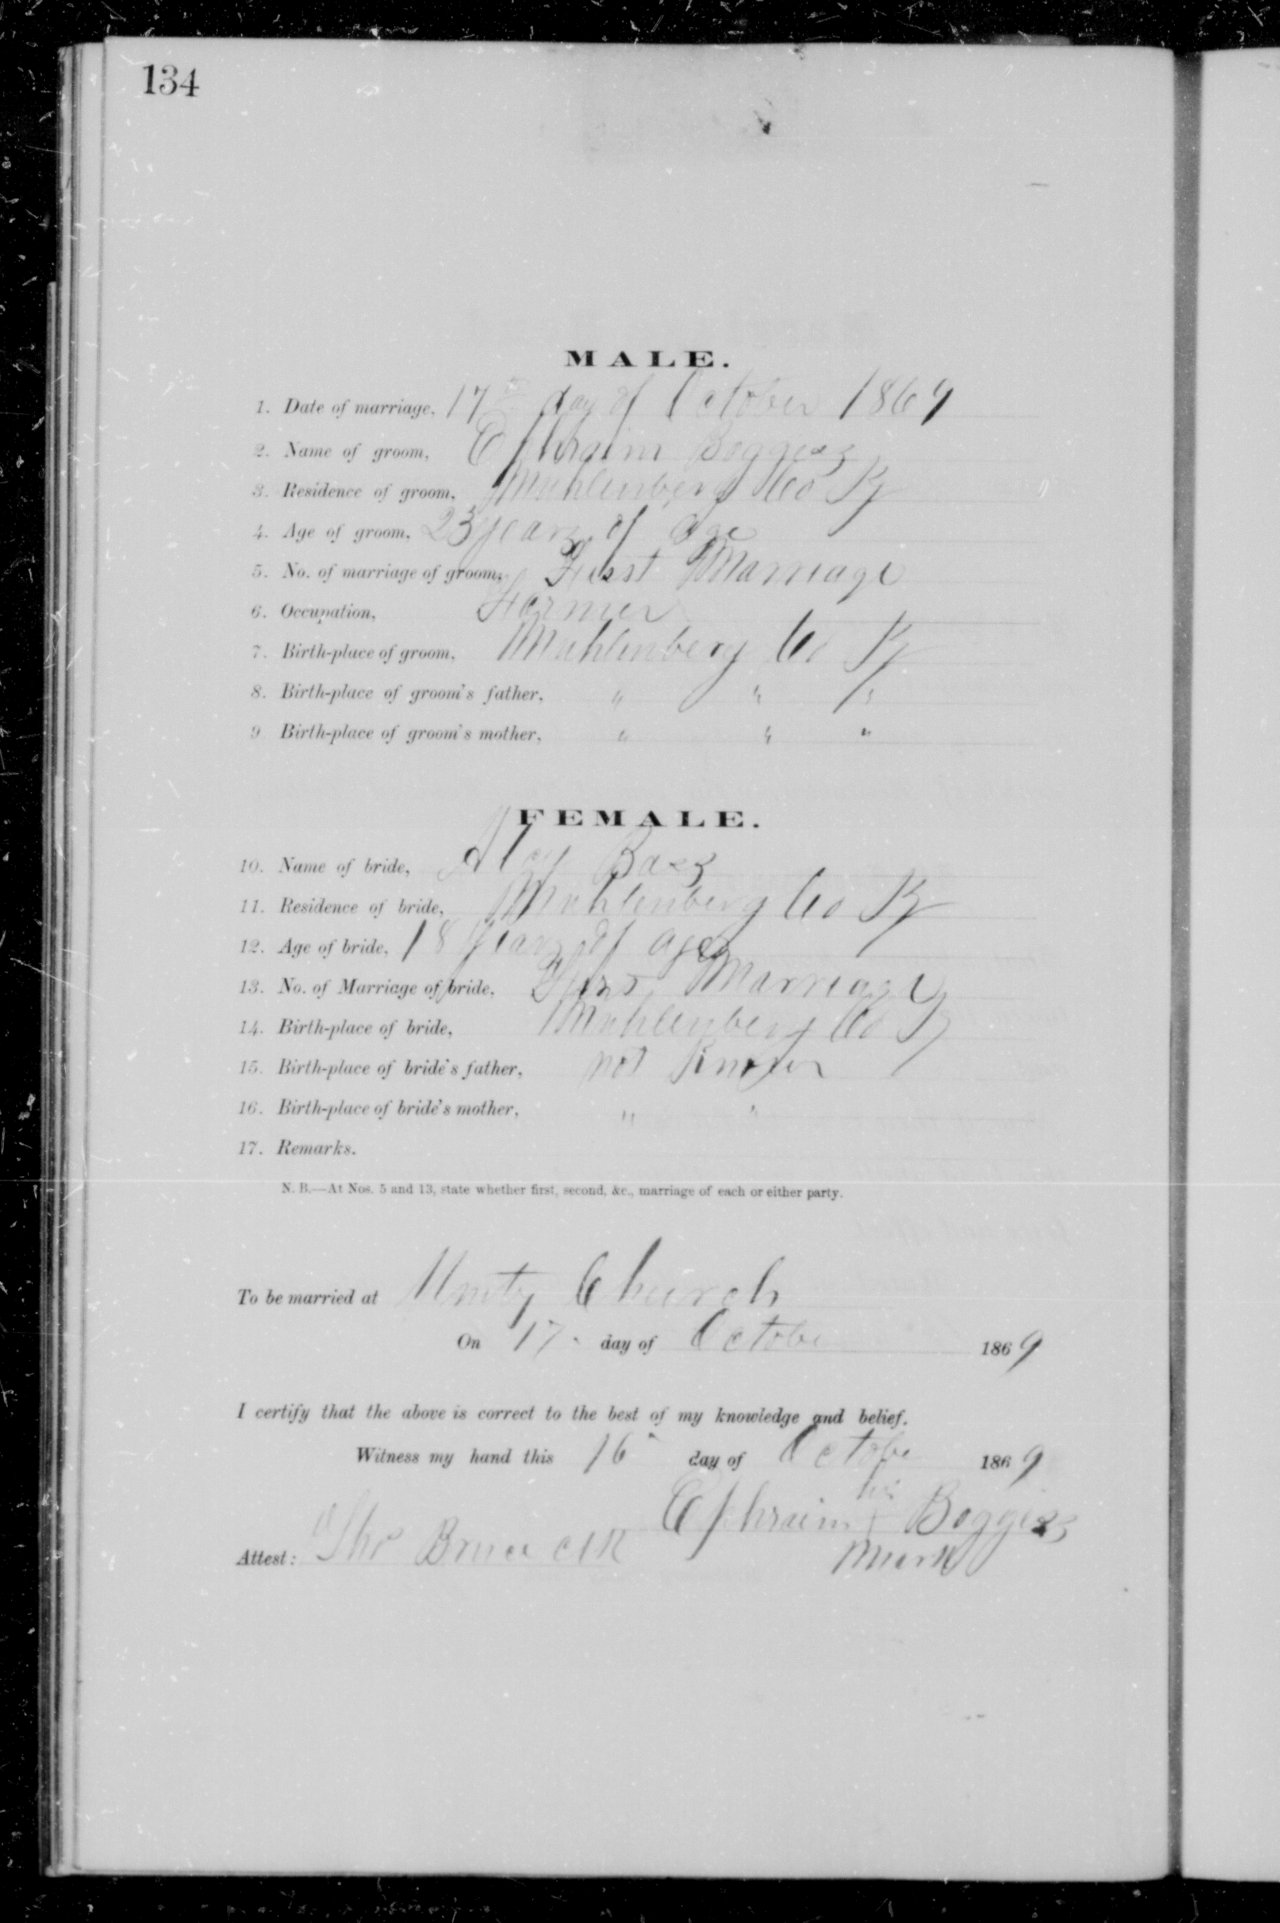 134
MALE.
1. Date of marriage, 17th day of October 1869
2. Name of groom, Ephraim Boggess
3. Residence of groom, Muhlenberg Co Ky
4. Age of groom, 23 years of age
5. No. of marriage of groom, First Marriage
6. Occupation, Farmer
7. Birth-place of groom, Muhlenberg Co Ky
8. Birth-place of groom's father, " " "
9 Birth-place of groom's mother, " " "
FEMALE.
10. Name of bride, Bass
11. Residence of bride, Muhlenberg Co Ky
12. Age of bride, 18 years of age
13. No. of Marriage of bride, First Marriage
14. Birth-place of bride, Muhlenberg Co Ky
15. Birth-place of bride's father, not Known
16. Birth-place of bride's mother, " "
17. Remarks.
N. B.—At Nos. 5 and 13, state whether first, second, &c., marriage of each or either party.
To be married at Unity Church
On 17" day of October 1869
I certify that the above is correct to the best of my knowledge and belief.
Witness my hand this 16" day of October 1869
his
Ephraim + Boggess
Attest: Tho Bruce clk mark